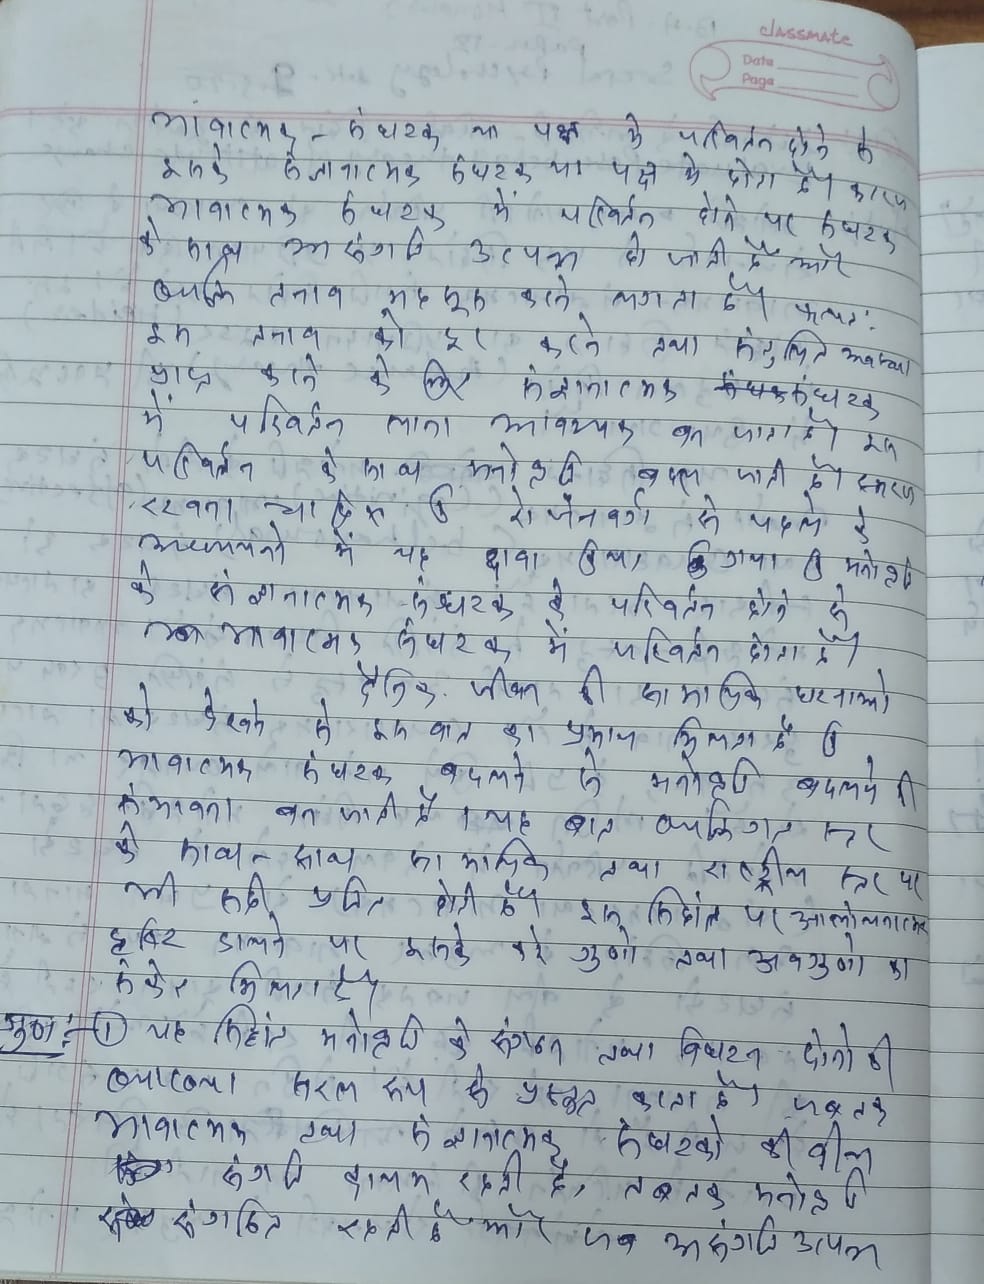 classmate
Date
Page
भावात्मक - संघटक या पक्ष के परिवर्तन होने से
इसके संज्ञानात्मक संघटक या पक्ष में होता है। कारण
भावात्मक संघटक में परिवर्तन होने पर संघटक
के साथ असंगति उत्पन्न हो जाती है और
व्यक्ति तनाव महसूस करने लगता है। फलतः
इस तनाव को दूर करने तथा संतुलित अवस्था
प्राप्त करने के लिए संज्ञानात्मक संघटक
में परिवर्तन लाना आवश्यक बन जाता है। इस
परिवर्तन के साथ मनोवृति बदल जाती है। स्मरण
रखना चाहिए कि रोजेनवर्ग से पहले के
अध्ययनों में यह दावा किया गया कि मनोवृति
के संज्ञानात्मक संघटक के परिवर्तन होने से
भावात्मक संघटक में परिवर्तन होता है।
दैनिक जीवन की सामाजिक घटनाओं
को देखने से इस बात का प्रमाण मिलता है कि
भावात्मक संघटक बदलने से मनोवृति बदलने की
संभावना बन जाती है। यह बात व्यक्तिगत स्तर
के साथ-साथ सामाजिक तथा राष्ट्रीय स्तर पर
भी सही प्रतित होती है। इस सिद्धांत पर आलोचनात्मक
दृष्टि डालने पर इसके कई गुणों तथा अवगुणों का
संकेत मिलता है।
गुण :- ① यह सिद्धांत मनोवृति के संगठन तथा विघटन दोनों की
व्याख्या सरल रूप से प्रस्तुत करता है। जब तक
भावात्मक तथा संज्ञानात्मक संघटकों की बीच
संगति कायम रहती है, तब तक मनोवृति
संगठित रहती है और जब असंगति उत्पन्न